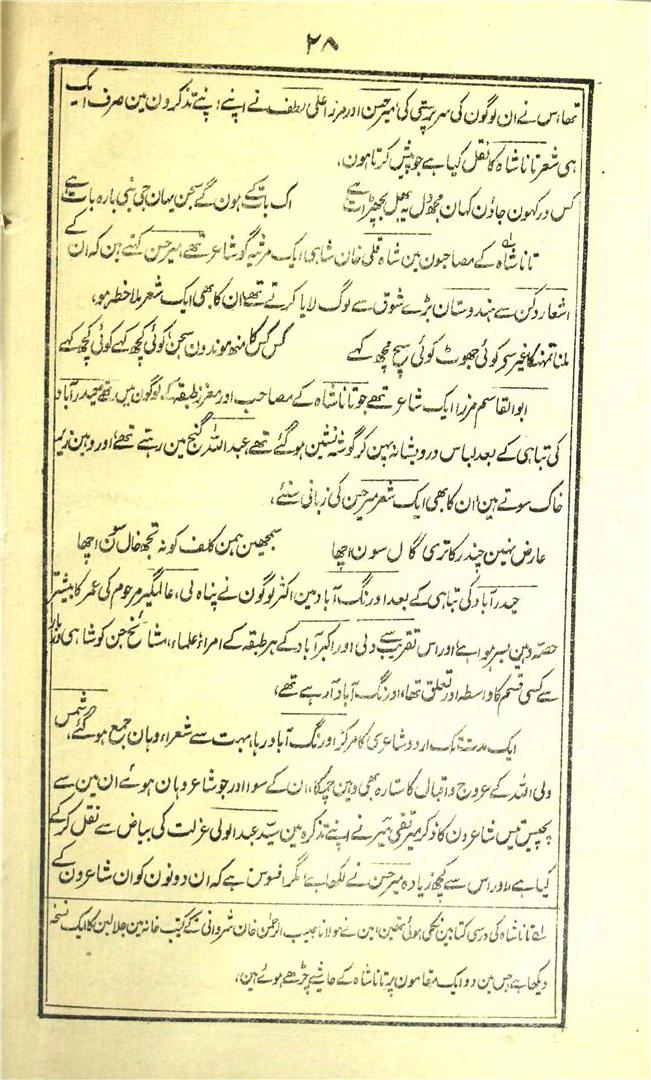 ۲۸
تھا، اس نے ان لوگون کی سرپرستی کی، میر حسن اور مرزا علی لطف نے اپنے اپنے تذکرون مین صرف ایک
ہی شعر تانا شاہ کا نقل کیا ہے جو پیش کرتا ہون،
کس در کہون جاؤن کہان مجھ دل پہ بھل بچھڑات ہے اک بات کے ہون گے سجن یہان جی ہی بارہ باٹ ہے
تانا شاہ کے مصاحبون مین شاہ قلی خان شاہی ایک مرثیہ گو شاعر تھے، میر حسن کہتے ہین کہ ان کے
اشعار دکن سے ہندوستان بڑے شوق سے لوگ لایا کرتے تھے، ان کا بھی ایک شعر ملاحظہ ہو،
ملنا تمہن کا غیر سے کوئی جھوٹ کوئی سچ مچھ کہے کس کس کا منھ موندون سجن کوئی کچھ کہے کوئی کچھ کہے
ابو القاسم مرزا ایک شاعر تھے جو تانا شاہ کے مصاحب اور معزز طبقہ کے لوگون مین تھے، حیدرآباد
کی تباہی کے بعد لباس درویشانہ پہن کر گوشہ نشین ہو گئے تھے، عبد اللہ گنج مین رہتے تھے، اور وہین زیر
خاک سوتے ہین، ان کا بھی ایک شعر میر حسن کی زبانی سنئے،
عارض نہین چندر کا تری گال سون اچھا سمجھین ہمن کلف کو نہ تجھ خال سون اچھا
حیدرآباد کی تباہی کے بعد اورنگ آباد مین اکثر لوگون نے پناہ لی، عالمگیر مرحوم کی عمر کا بیشتر
حصہ وہین بسر ہوا ہے، اور اس تقریب سے دلی اور اکبر آباد کے ہر طبقہ کے امراء، علماء، مشائخ جن کو شاہی دربار
سے کسی قسم کا واسطہ اور تعلق تھا، اورنگ آباد آ رہے تھے،
ایک مدت تک اردو شاعری کا مرکز اورنگ آباد رہا، بہت سے شعراء وہان جمع ہو گئے، شمس
ولی اللہ کے عروج و اقبال کا ستارہ بھی وہین چمکا، ان کے سوا اور جو شاعر وہان ہوئے ان مین سے
پچیس تیس شاعرون کا ذکر میر تقی میر نے اپنے تذکرہ مین سید عبد الولی عزلت کی بیاض سے نقل کر کے
کیا ہے، اور اس سے کچھ زیادہ میر حسن نے لکھا ہے، مگر افسوس ہے کہ ان دونون کو ان شاعرون کے
لے تانا شاہ کی درسی کتابین لکھی ہوئی تھین مین نے مولانا حبیب الرحمن خان شروانی کے کتب خانہ مین جلالین کا ایک نسخہ
دیکھا ہے جس مین دو ایک مقامون پر تانا شاہ کے حاشیے چڑھے ہوئے ہین،